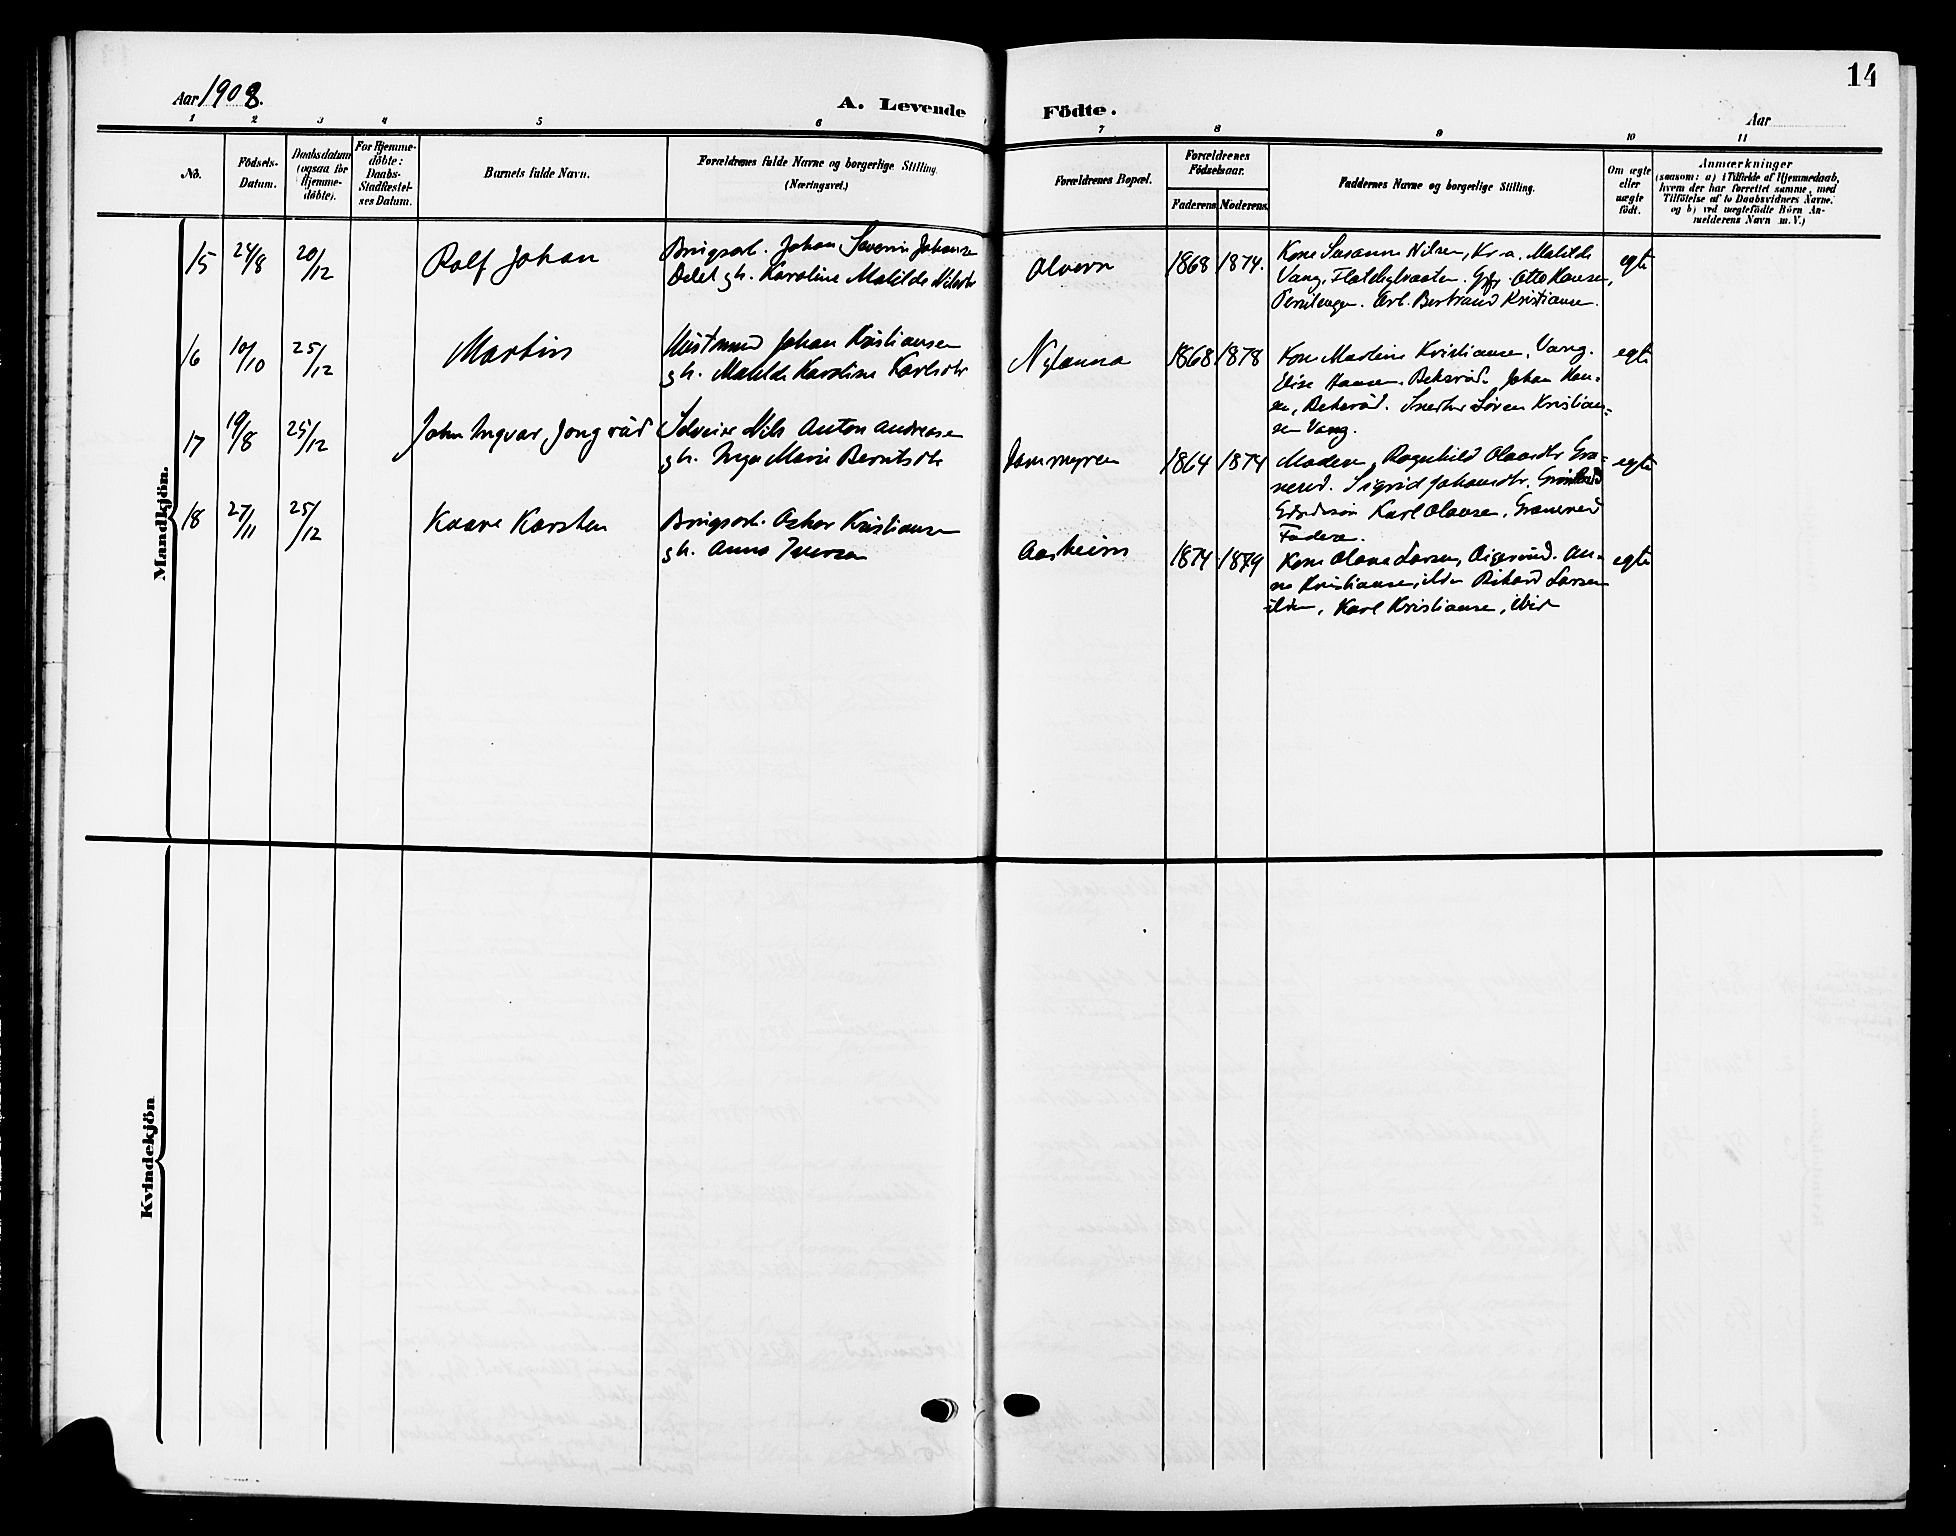 Aar 1908.
A. Levende Födte.
Aar
14
1 2 3 4 5 6 7 8 9 10 11
No.
Födsels-
Datum.
Daabsdatum
(ogsaa for
Hjemme-
döbte).
For Hjemme-
döbte:
Daabs-
Stadfæstel-
ses Datum.
Barnets fulde Navn.
Forældrenes fulde Navne og borgerlige Stilling.
(Næringsvei.)
Forældrenes Bopæl.
Forældrenes
Födselsaar.
Faderens Moderens.
Faddernes Navne og borgerlige Stilling.
Om ægte
eller
uægte
födt.
Anmærkninger
(saasom: a) i Tilfælde af Hjemmedaab,
hvem der har forrettet samme, med
Tilföielse af to Daabsvidners Navne.
og b) ved uægtefödte Börn An-
melderens Navn m. V.)
Mandkjön.
15 24/8 20/12 Rolf Johan
Brugsarb. Johan Severin Johansen
gh. Karoline Matilde Nilsdtr
1868 1874.
Kone Susanne Nilsen, Kr.a. Matilde
Vang, Otto Hansen,
Arb. Bertrand Kristiansen.
egte
16 10/10 25/12 Martin
Johan Kristiansen
gh. Matilde Karoline Karlsdtr
1868 1878
Kone Martine Kristiansen, Vang.
Elise Hansen, Johan Han-
sen, Søren Kristian-
sen Vang.
egte
17 19/8 25/12 John Ingvar,
Selveier Nils Anton Andreasen
gh. Inga Marie Berntsdtr
Dammyren 1864 1874
Moderen, Ragnhild Olavsdtr
Sigrid Johansdtr.
Karl Olavsen,
Faderen.
egte
18 27/11 25/12 Kaare Karsten
Brugsarb. Oskar Kristiansen
gh. Anna Iversen
Aasheim 1874 1879
Kone Olava Larsen, An-
na Kristiansen, Rikard Larsen
Karl Kristiansen, ibid
egte
Kvindekjön